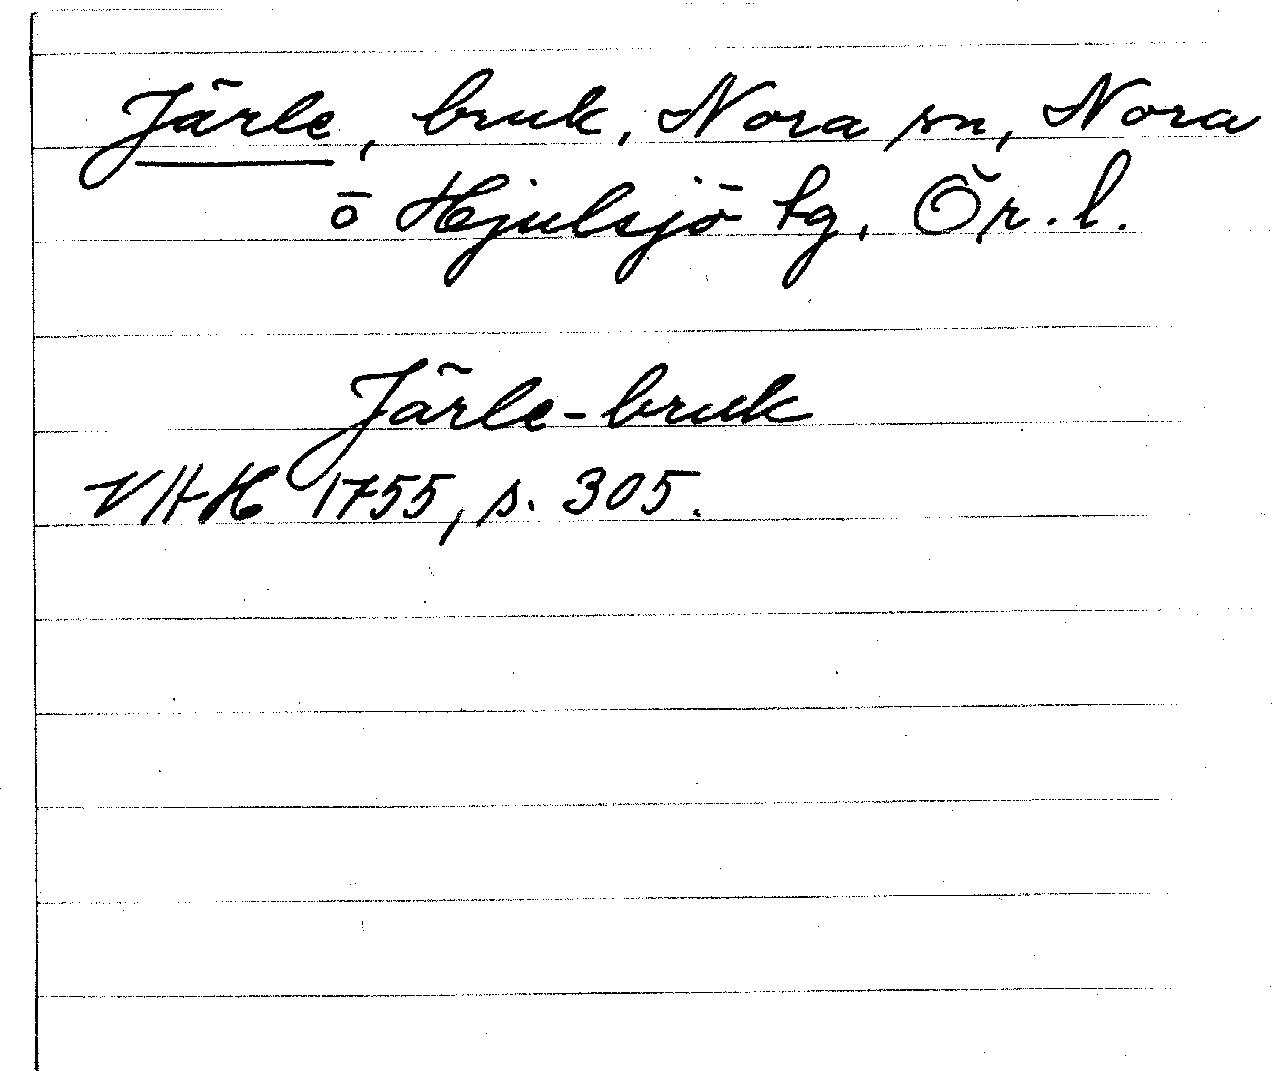 Järle, bruk, Nora sn, Nora
o Hjulsjö bg, Ör. l.
Järle-bruk
VHH 1755, s. 305.